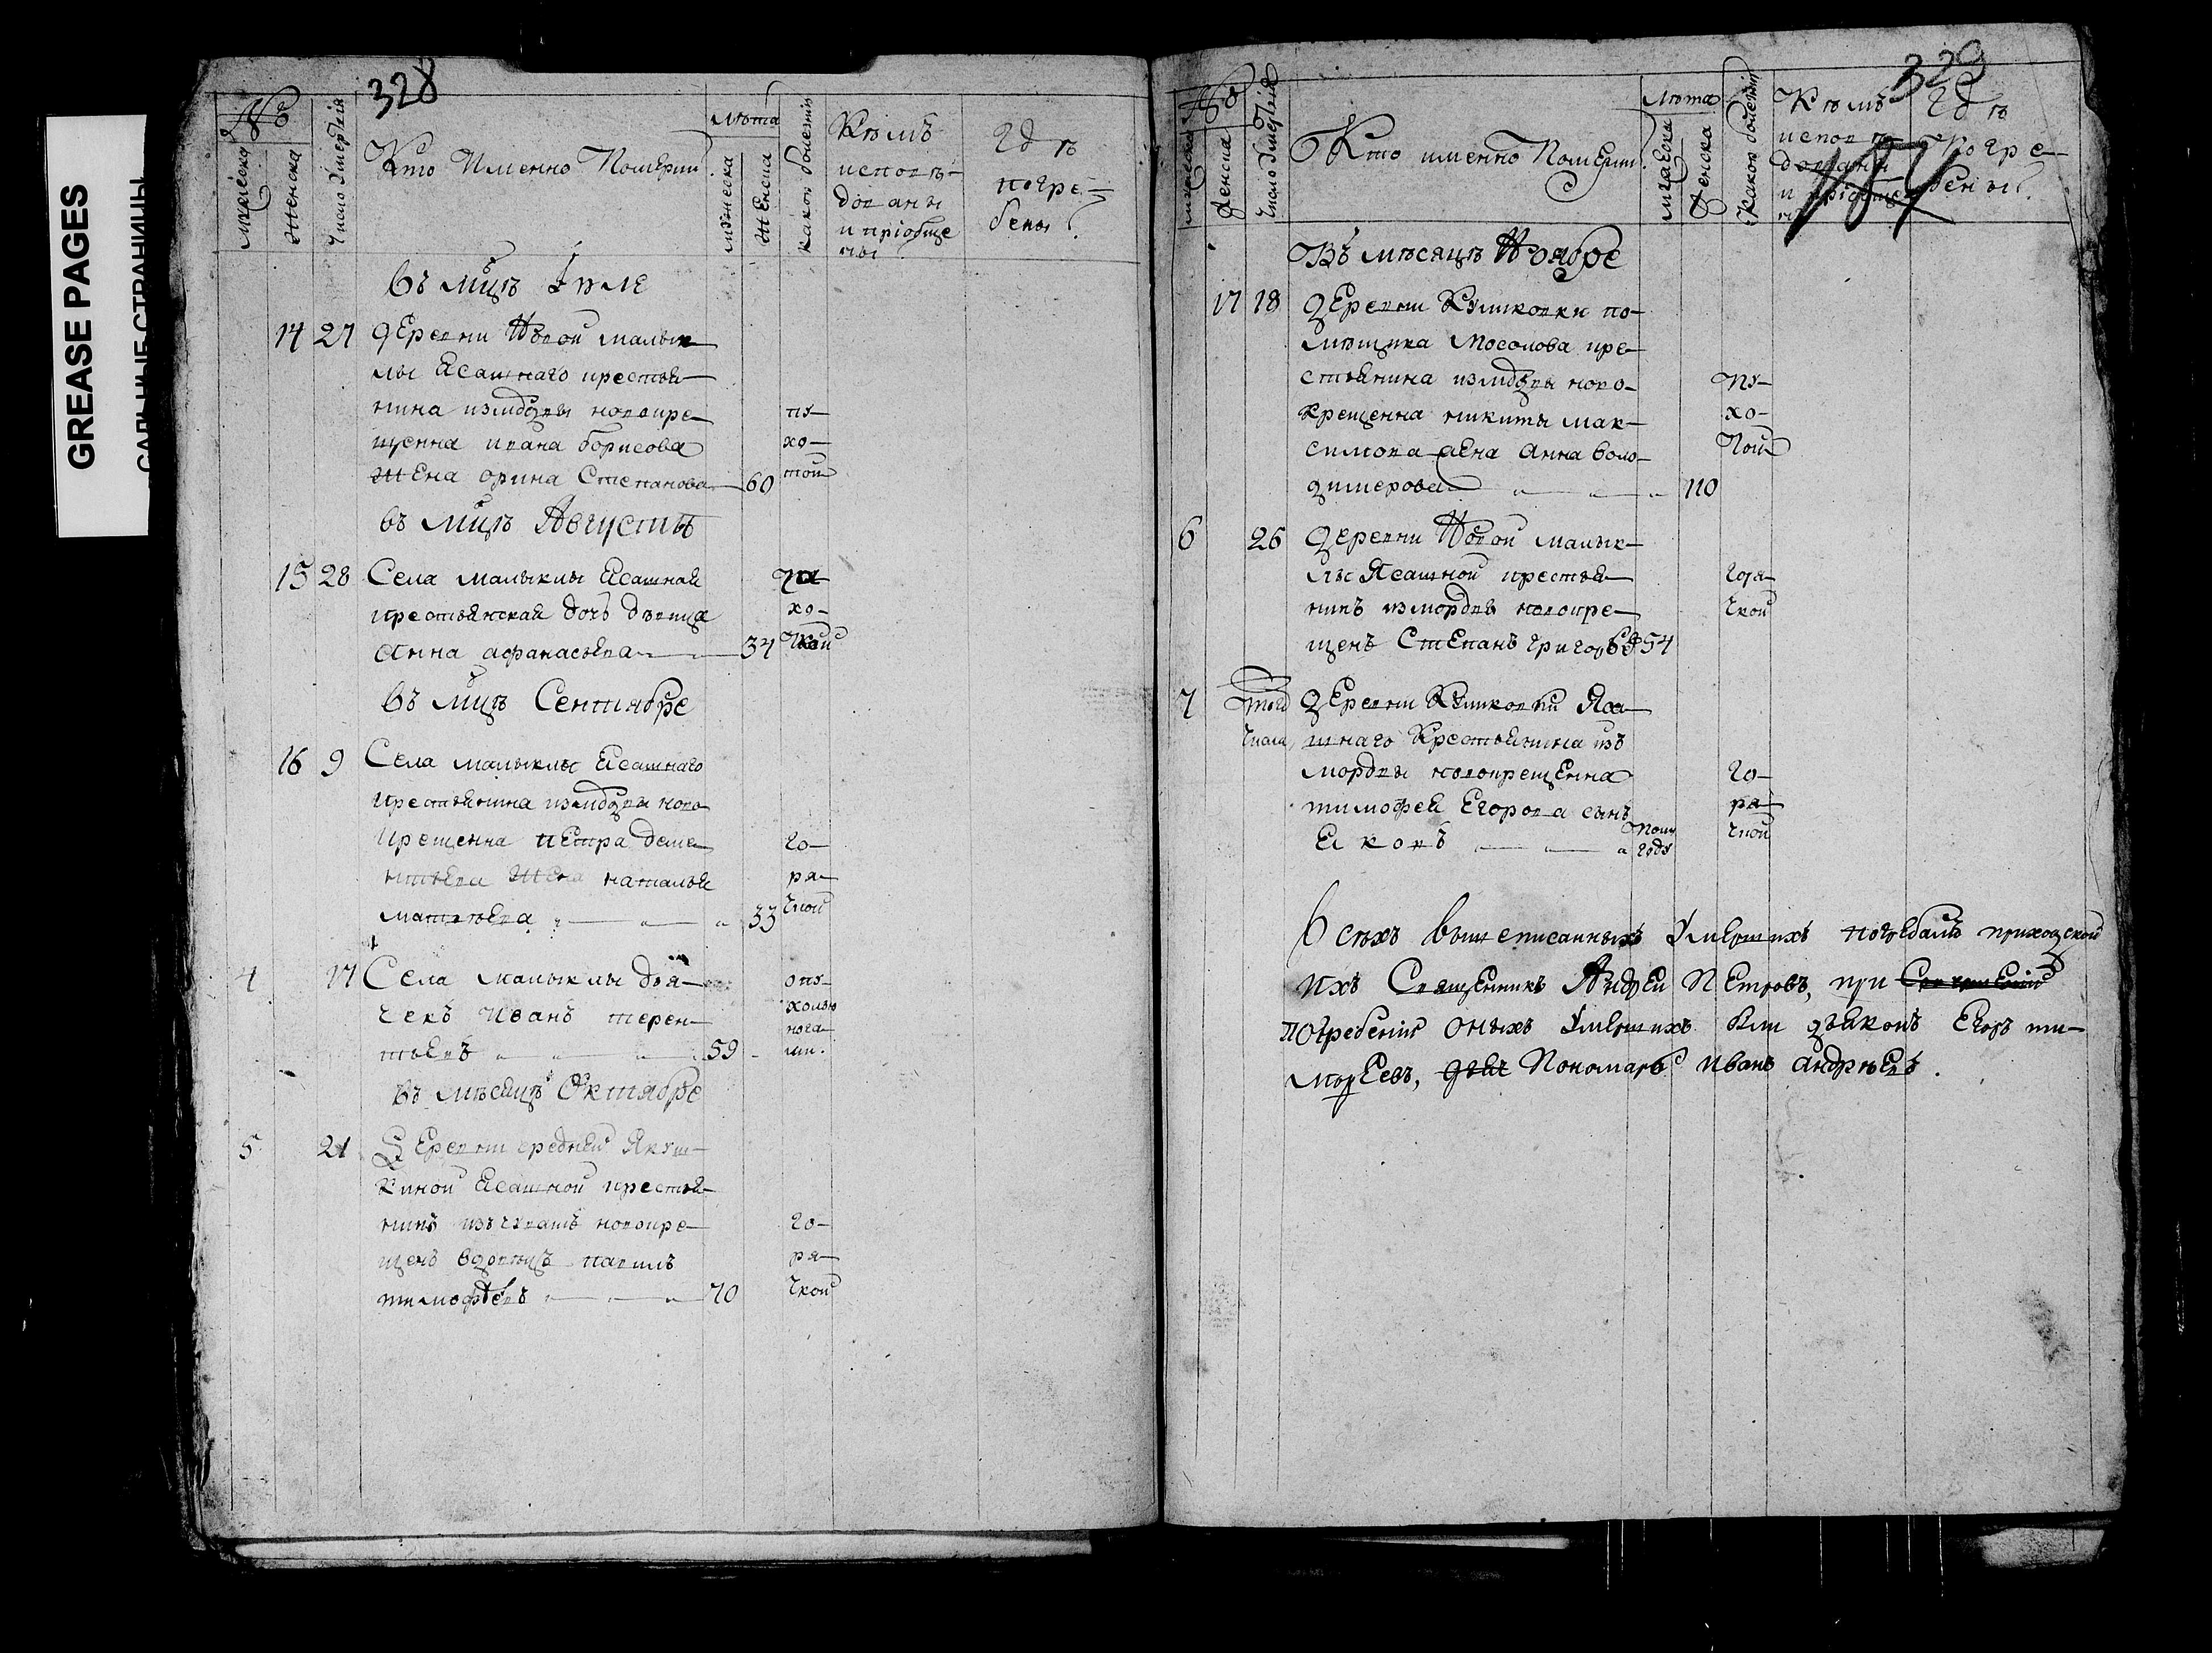 GREASE PAGES
САЛЬНЫЕ СТРАНИЦЫ
328
№
мужеска
женска
число умертвія
Кто Именно Померли
лѣта
мужеска
женска
какою болезнію
Кѣмъ
исповѣ-
дованы
и пріобще
ны
гдѣ
погре=
бены?
въ мцѣ Іюле
14 27 деревни Новой малык-
лы ясашнаго крестья-
нина изъ мордвы новокре- пу-
щенна ивана борисова хо-
жена орина Степанова 60 той
въ мцѣ Августѣ
15 28 Села малыклы ясашная
крестьянская дочь девица хо-
Анна афанасьева 34
въ мцѣ Сентябре
16 9 Села малыклы ясашнаго
крестьянина изъ мордвы ново
крещенна петра деме- го-
нтьева жена наталья ря-
матвѣева 33 чкой
4 17 Села малыклы дья- опу-
чекъ Иванъ терен- холью
тьевъ 59 нога
ми.
въ мѣсяцѣ Октябре
5 21 Деревни средней Якуш-
киной ясашной крестья-
нинъ изъ чювашъ новокре- го-
щенъ вдовецъ павилъ ря-
тимофѣевъ 70 чкой
329
184
№
мужеска
женска
число умертвія
Кто именно Померли
лѣта
мужеска
женска
Какою болезнію
Кѣмъ
исповѣ-
дованы
и пріобще
ны
гдѣ
погре-
бены?
Въ мѣсяцѣ Ноябре
17 18 деревни Куликовки по-
мѣщика Мосолова кре-
стьянина изъ мордвы ново- пу-
крещенна никиты мак- хо-
симова жена Анна воло- той
димерова 110
6 26 деревни Новой малык-
лы Ясашной крестья- горя-
нинъ изъ мордвы новокре- чкой
щенъ Степанъ григорьевъ 54
7 того деревни Куликовки Яса-
числа, шнаго крестьянина изъ
мордвы новокрещенна го-
тимофея Егорова сынъ ря-
Яковъ полу году чкой
Всѣхъ вышеписанныхъ умершихъ погребалъ приходской
ихъ Священникъ Андрей Петровъ, при
погребеніи оныхъ умершихъ были дьяконъ Егоръ ти-
мофеевъ, дьяч Пономарь Иванъ андрѣевъ.